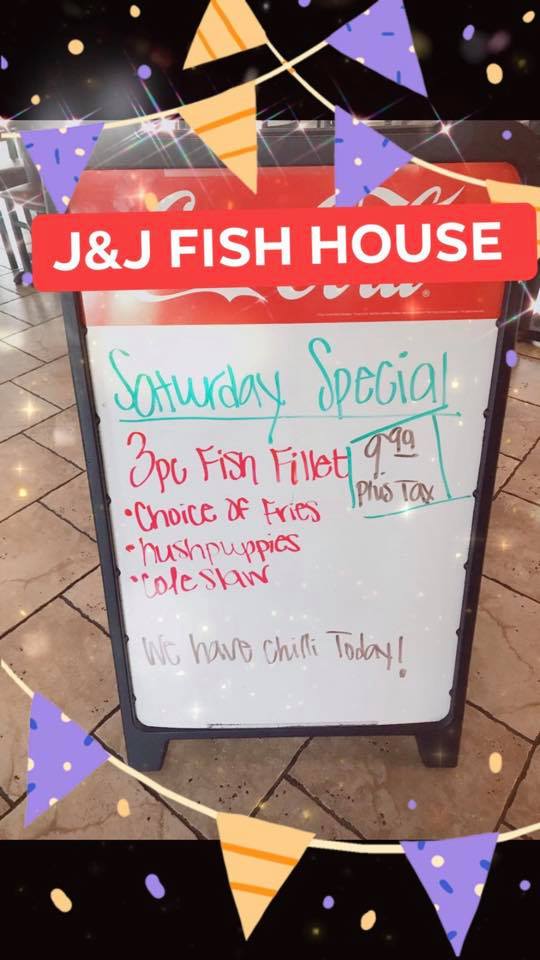 J&J FISH HOUSE
Saturday Special
3pc Fish Fillet
9.99
plus Tax
•Choice of Fries
•hushpuppies
•Coleslaw
We have chilli Today!